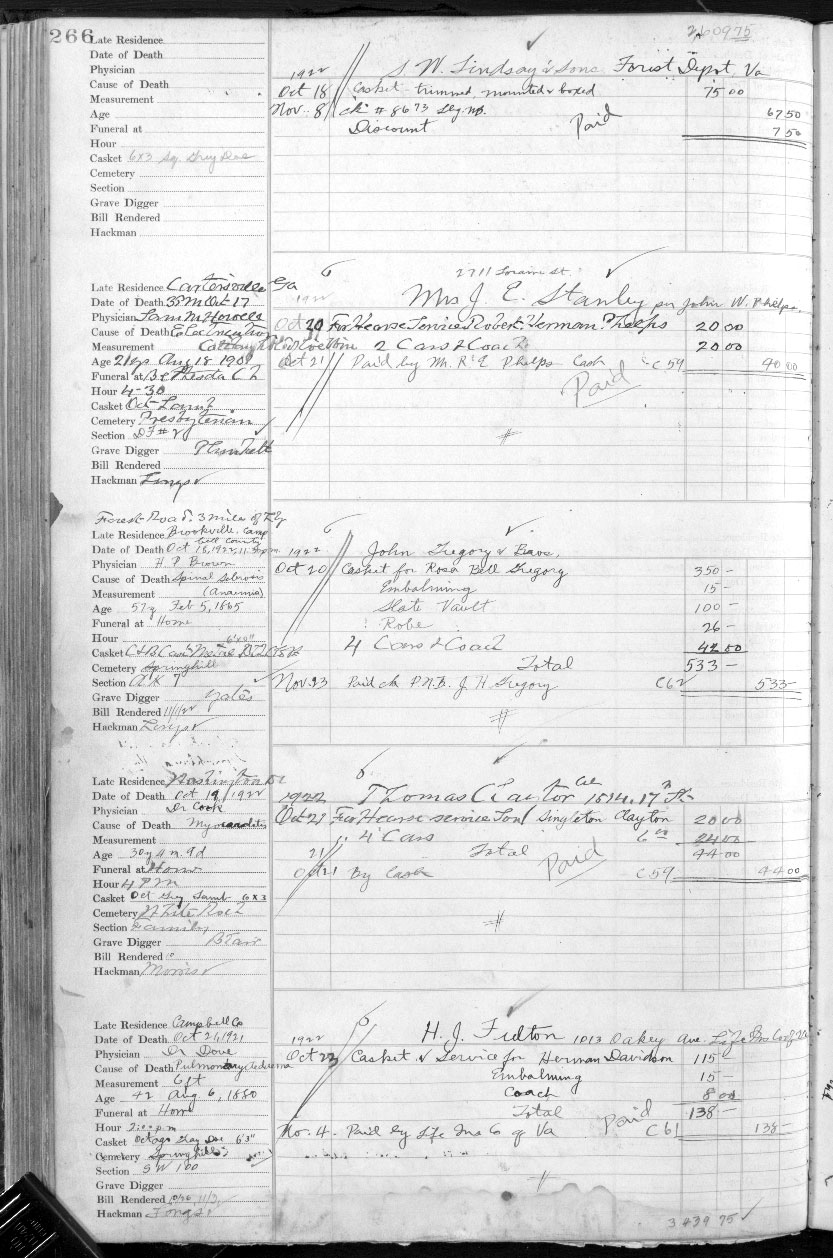 266
260975
Late Residence
Date of Death
Physician
Cause of Death
Measurement
Age
Funeral at
Hour
Casket 6x3 Sq. Grey Doe
Cemetery
Section
Grave Digger
Bill Rendered
Hackman
1922 S. W. Lindsay & Sons Forist Depot, Va
Oct 18 Casket trimmed mounted & boxed 75 00
Nov. 8 ck # 8673 67 50
Discount Paid 7 50
Late Residence Cartersville Ga
Date of Death Oct 17
Physician
Cause of Death Electricution
Measurement
Age 21 yr Aug 18 1901
Funeral at Bethesda Ch
Hour 4-30
Casket Oct Lamb
Cemetery Presbyterian
Section
Grave Digger Plunkett
Bill Rendered
Hackman
2711 St.
1922 Mrs J. E. Stanley per John W. Phelps.
Oct 20 For Hearse Service Robert Herman Phelps 20 00
2 Cars & Coach 20 00
Oct 21 Paid by M. R. E Phelps Cash C 59 40 00
Paid
Forest Road. 3 miles of
Late Residence Brookville, Camp
bell County
Date of Death Oct 18, 1922, 11:30 pm
Physician H. P. Brown
Cause of Death Spinal Sclerosis
Measurement (Anaemia)
Age 57 y Feb 5, 1865
Funeral at Home
Hour 6'x0"
Casket
Cemetery Springhill
Section A K 7
Grave Digger Yates
Bill Rendered 11/1/22
Hackman
1922 John Gregory &
Oct 20 Casket for Rosa Bell Gregory 350 -
Embalming 15 -
Slate Vault 100 -
Robe 26 -
4 Cars & Coach 42 00
Total 533 -
Nov. 23 Paid ck P.N.B. J H Gregory C62 533 -
Late Residence Washington DC
Date of Death Oct 19, 1922
Physician Dr Cook
Cause of Death Myocarditis
Measurement
Age 30 y 4 m 9 d
Funeral at Home
Hour 4 P M
Casket Oct Gry Lamb 6x3
Cemetery White Rock
Section Family
Grave Digger
Bill Rendered
Hackman Morris
1922 Thomas Clayton Col 1514. 17th St
Oct 21 For Hearse service Son Singleton Clayton 20 00
4 Cars 6 00 24 00
21 Total 44 00
Oct 21 By Cash Paid C 59 44 00
Late Residence Campbell Co
Date of Death Oct 21, 1921
Physician Dr Dove
Cause of Death Pulmonary Oedema
Measurement 6 ft
Age 42 Aug 6, 1880
Funeral at Home
Hour 2:00 p m
Casket Octago Gray Doe 6'3"
Cemetery Springhill
Section S W 100
Grave Digger
Bill Rendered 10/26, 11/3
Hackman
1922 H. J. Fulton 1013 Oakey Ave. Life Ins Co of Va
Oct 23 Casket & Service for Herman Davidson 115 -
Embalming 15 -
Coach 8 00
Total 138 -
Nov. 4 - Paid by Life Ins Co of Va Paid C 61 138 -
3439 75